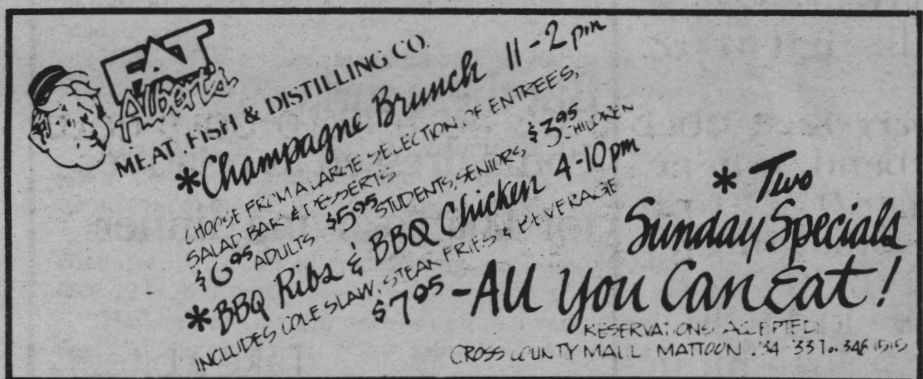 FAT
Albert's
MEAT, FISH & DISTILLING CO.
*Champagne Brunch 11-2 pm
CHOOSE FROM A LARGE SELECTION OF ENTREES,
SALAD BAR & DESSERTS
$6.95 ADULTS $5.95 STUDENTS, SENIORS, $3.95 CHILDREN
*BBQ Ribs & BBQ Chicken 4-10pm
INCLUDES COLE SLAW, STEAK FRIES & BEVERAGE
$7.95
* Two
Sunday Specials
-All You Can Eat!
RESERVATIONS ACCEPTED
CROSS COUNTY MALL MATTOON